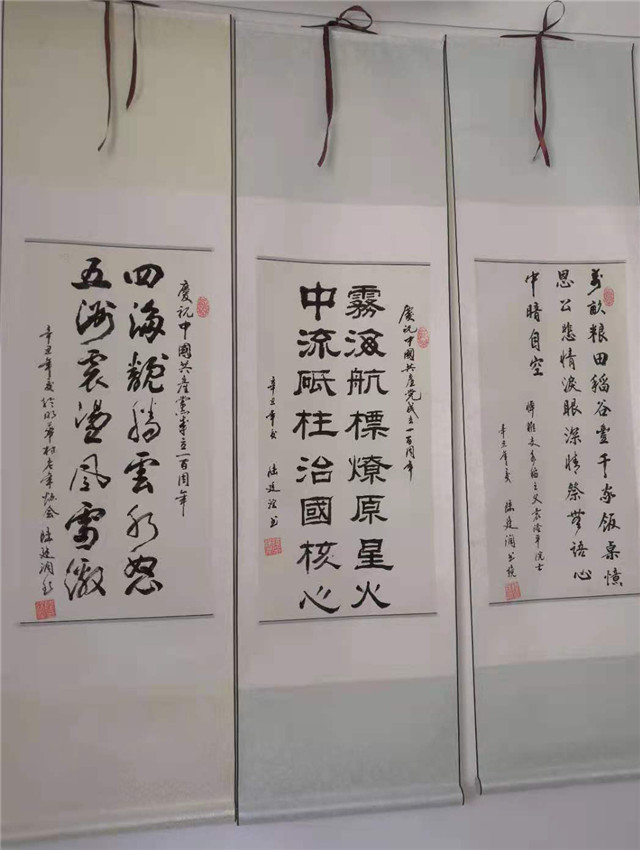 萬畝粮田稻谷豐千家飯桌憶
思公悲情淚眼深情祭無語心
中暗自空
悼雜交水稻之父袁隆平院士
辛丑年夏 陸建潤书
慶祝中國共產党成立一百周年
霧海航標燎原星火
中流砥柱治國核心
辛丑年夏 陸建潤书
慶祝中國共產黨建立一百周年
四海翻騰雲水怒
五洲震盪風雷激
辛丑年夏於 村老年协会 陸建潤